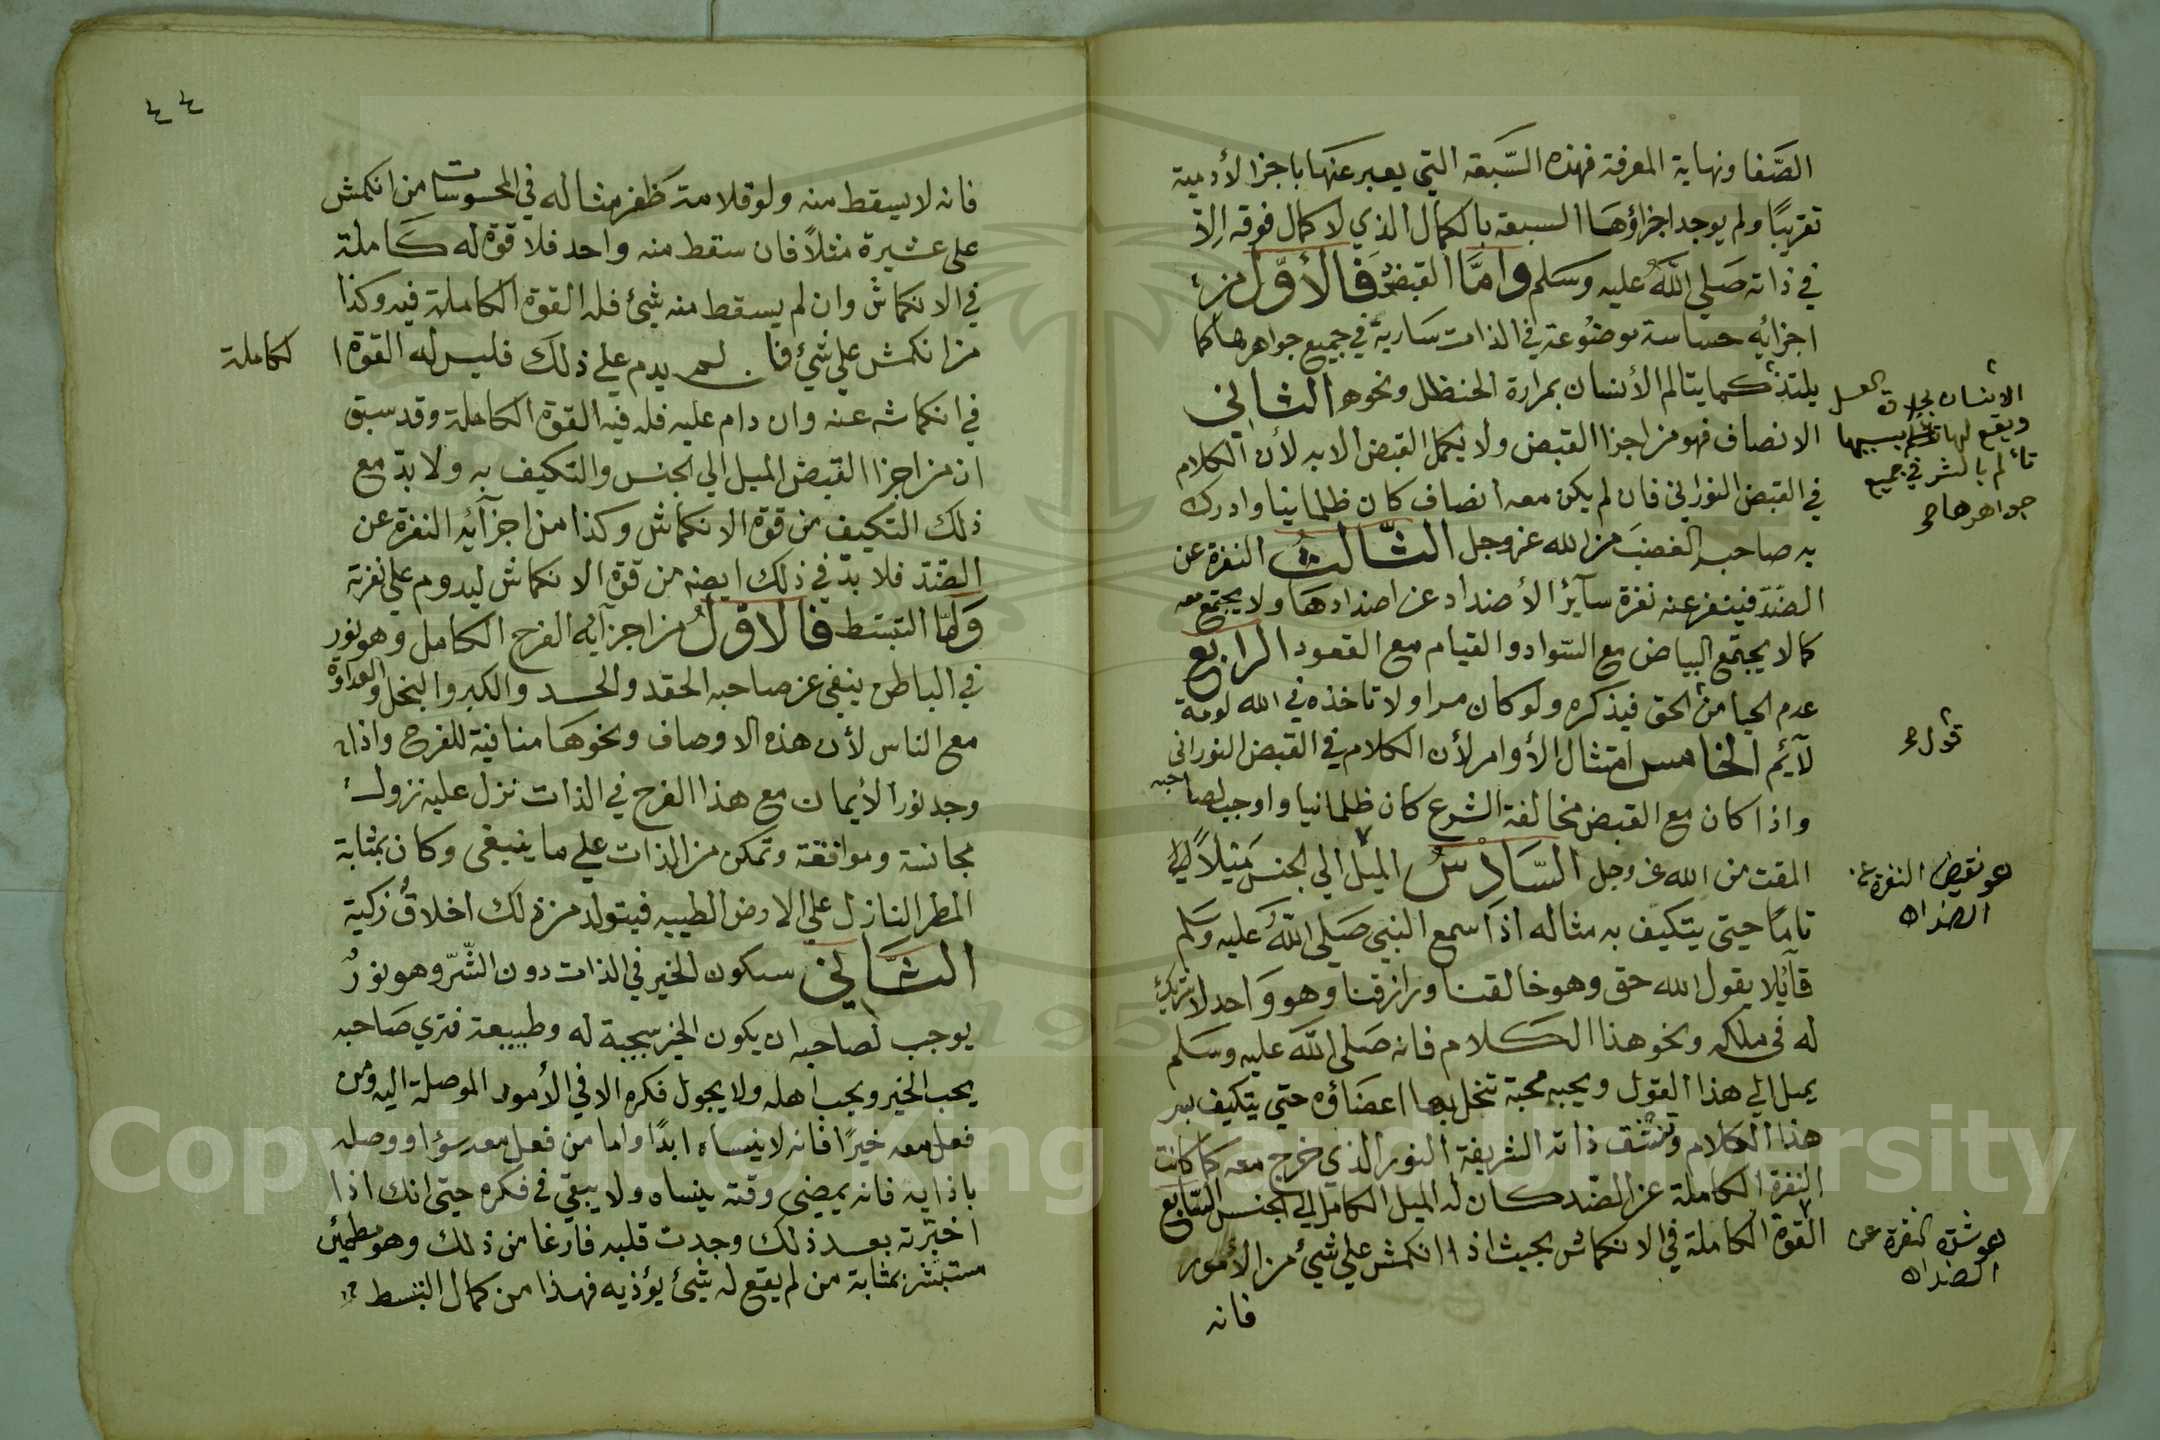 الصفا ونهاية المعرفة فهذه السبعة التي يعبر عنها باجزا الأدمية
تقريبًا ولم يوجد اجزاؤها السبعة بالكمال الذي لا كمال فوقه الا
في ذاته صلي الله عليه وسلم واما القبض فالأول من
اجزائه حساسة موضوعة في الذات سارية في جميع جواهرها كما
يلتذ كما يتالم الأنسان بمرارة الحنظل ونحوه الثاني
الانصاف فهو من اجزا القبض ولا يكمل القبض الا به لأن الكلام
في القبض النوراني فان لم يكن معه انصاف كان ظلمانيا وادرك
به صاحبه الغضب من الله عز وجل الثالث النفرة عن
الضد فينفر عنه نفرة سآئر الأضداد عن اضدادها ولا يجتمع معه
كما لا يجتمع البياض مع السواد والقيام مع القعود الرابع
عدم الحيا من الحق فيذكره ولو كان مرا ولا تاخذه في الله لومة
لآئم الخامس امتثال الأوامر لأن الكلام في القبض النوراني
واذا كان مع القبض مخالفة الشرع كان ظلمانيا واوجب لصاحبه
المقت من الله عز وجل السادس الميل الي الجنس ميلاً
تامًا حتي يتكيف به مثاله اذا سمع النبي صلي الله عليه وسلم
قآئلا يقول الله حق وهو خالقنا ورازقنا وهو واحد لا شريك
له في ملكه ونحو هذا الكلام فانه صلي الله عليه وسلم
يميل الي هذا القول ويحبه محبة تنحل بها اعضاؤه حتي يتكيف بسر
هذا الكلام وتنشق ذاته الشريفة النور الذي خرج معه كما كانت
النفرة الكاملة عن الضد كان له الميل الكامل الي الجنس السابع
القوة الكاملة في الانكماش بحيث اذا انكمش علي شيئ من الأمور
فانه
الانسان بحلاوة العسل
ويقع لها بسببها
تألم بالشر في جميع
جواهرها صح
قول صح
هو نقيض النفرة عن
الضد اه
هو شدة النفرة عن
الضد اه
٤٤
فانه لا يسقط منه ولو قلامة ظفر مثاله في المحسوسات من انكمش
علي عشيرة مثلاً فان سقط منه واحد فلا قوة له كاملة
في الانكماش وان لم يسقط منه شيئ فله القوة الكاملة فيه وكذا
من انكمش علي شيئ فان لم يدم علي ذلك فليس له القوة ا
لكاملة
في انكماشه عنه وان دام عليه فله فيه القوة الكاملة وقد سبق
ان من اجزا القبض الميل الي الجنس والتكيف به ولا بد مع
ذلك التكيف من قوة الانكماش وكذا من اجزآئه النفرة عن
الضد فلا بد في ذلك ايضه من قوة الانكماش ليدوم علي نفرته
واما البسط فالاول من اجزآئه الفرح الكامل وهو نور
في الباطن ينفي عن صاحبه الحقد والحسد والكبر والبخل والعداوة
مع الناس لأن هذه الاوصاف ونحوها منافية للفرح واذا
وجد نور الأيمان مع هذا الفرح في الذات نزل عليه نزول
مجانسة وموافقة وتمكن من الذات علي ما ينبغي وكان بمثابة
المطر النازل علي الارض الطيبه فيتولد من ذلك اخلاق زكية
الثاني سكون الخير في الذات دون الشر وهو نور
يوجب لصاحبه ان يكون الخير سجية له وطبيعة فتري صاحبه
يحب الخير ويحب اهله ولا يجول فكره الا في الأمور الموصلة اليه ومن
فعل معه خيرًا فانه لا ينساه ابدًا واما من فعل معه سؤا ووصله
باذايه فانه يمضي وقته ينساه ولا يبقي في فكره حتي انك اذا
اختبرته بعد ذلك وجدت قلبه فارغا من ذلك وهو مطمئن
مستبشر بمثابة من لم يقع له شيئ يؤذيه فهذا من كمال البسط
Copyright © King Saud University
1957